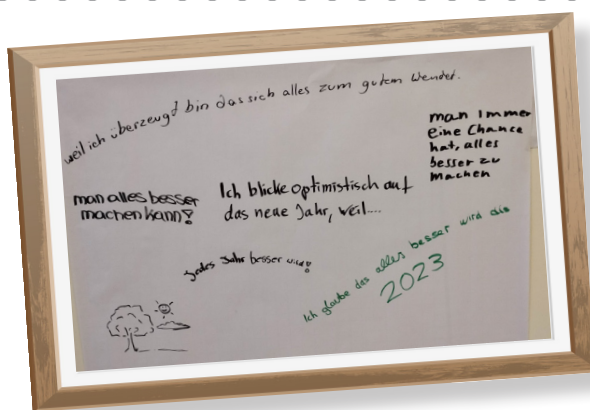 weil ich überzeugt bin das sich alles zum gutem Wendet.
man immer
eine Chance
hat, alles
besser zu
machen
man alles besser
machen kann!
Ich blicke optimistisch auf
das neue Jahr, weil....
Jedes Jahr besser wird!
Ich glaube das alles besser wird als
2023